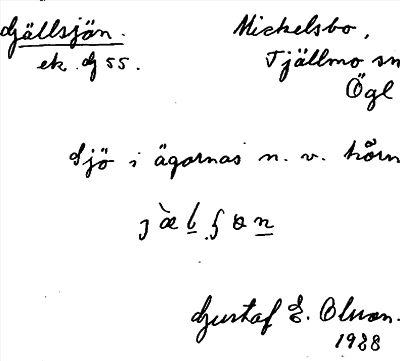 Gjällsjön.
ek. Gj 55.
Mickelsbo,
Tjällmo sn
Ögl
Sjö i ägornas n. v. hörn
Gustaf E. Olsson.
1933